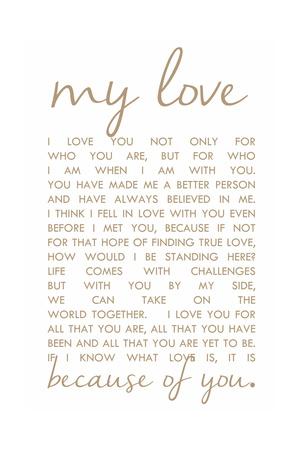 my love
I LOVE YOU NOT ONLY FOR
WHO YOU ARE, BUT FOR WHO
I AM WHEN I AM WITH YOU.
YOU HAVE MADE ME A BETTER PERSON
AND HAVE ALWAYS BELIEVED IN ME.
I THINK I FELL IN LOVE WITH YOU EVEN
BEFORE I MET YOU, BECAUSE IF NOT
FOR THAT HOPE OF FINDING TRUE LOVE,
HOW WOULD I BE STANDING HERE?
LIFE COMES WITH CHALLENGES
BUT WITH YOU BY MY SIDE,
WE CAN TAKE ON THE
WORLD TOGETHER. I LOVE YOU FOR
ALL THAT YOU ARE, ALL THAT YOU HAVE
BEEN AND ALL THAT YOU ARE YET TO BE.
IF I KNOW WHAT LOVE IS, IT IS
because of you.